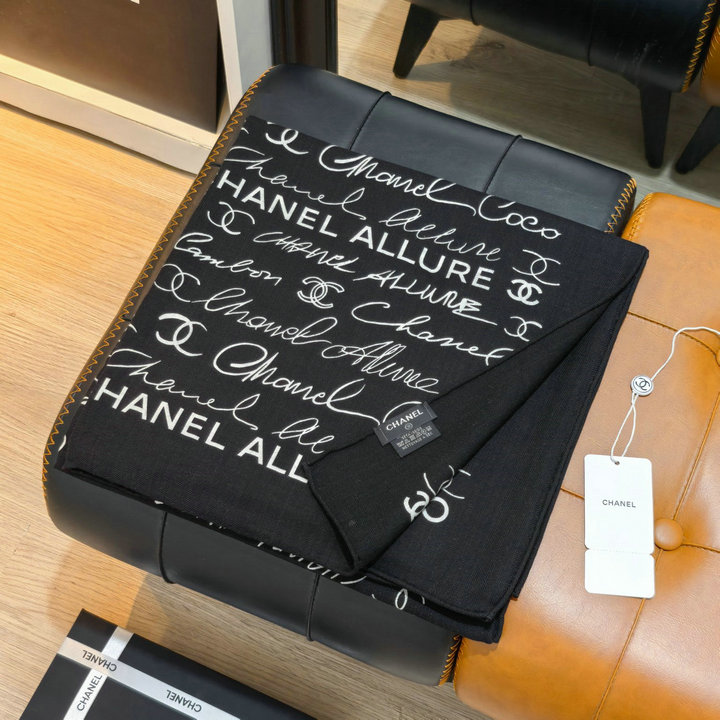 Chanel Coco
Chanel Allure
HANEL ALLURE
CHANEL ALLURE
Cambon
Chanel
Chanel Allure
Chanel
Chanel Al
HANEL ALLU
CHANEL
CHANEL
CHANEL
CHANEL
CHANEL